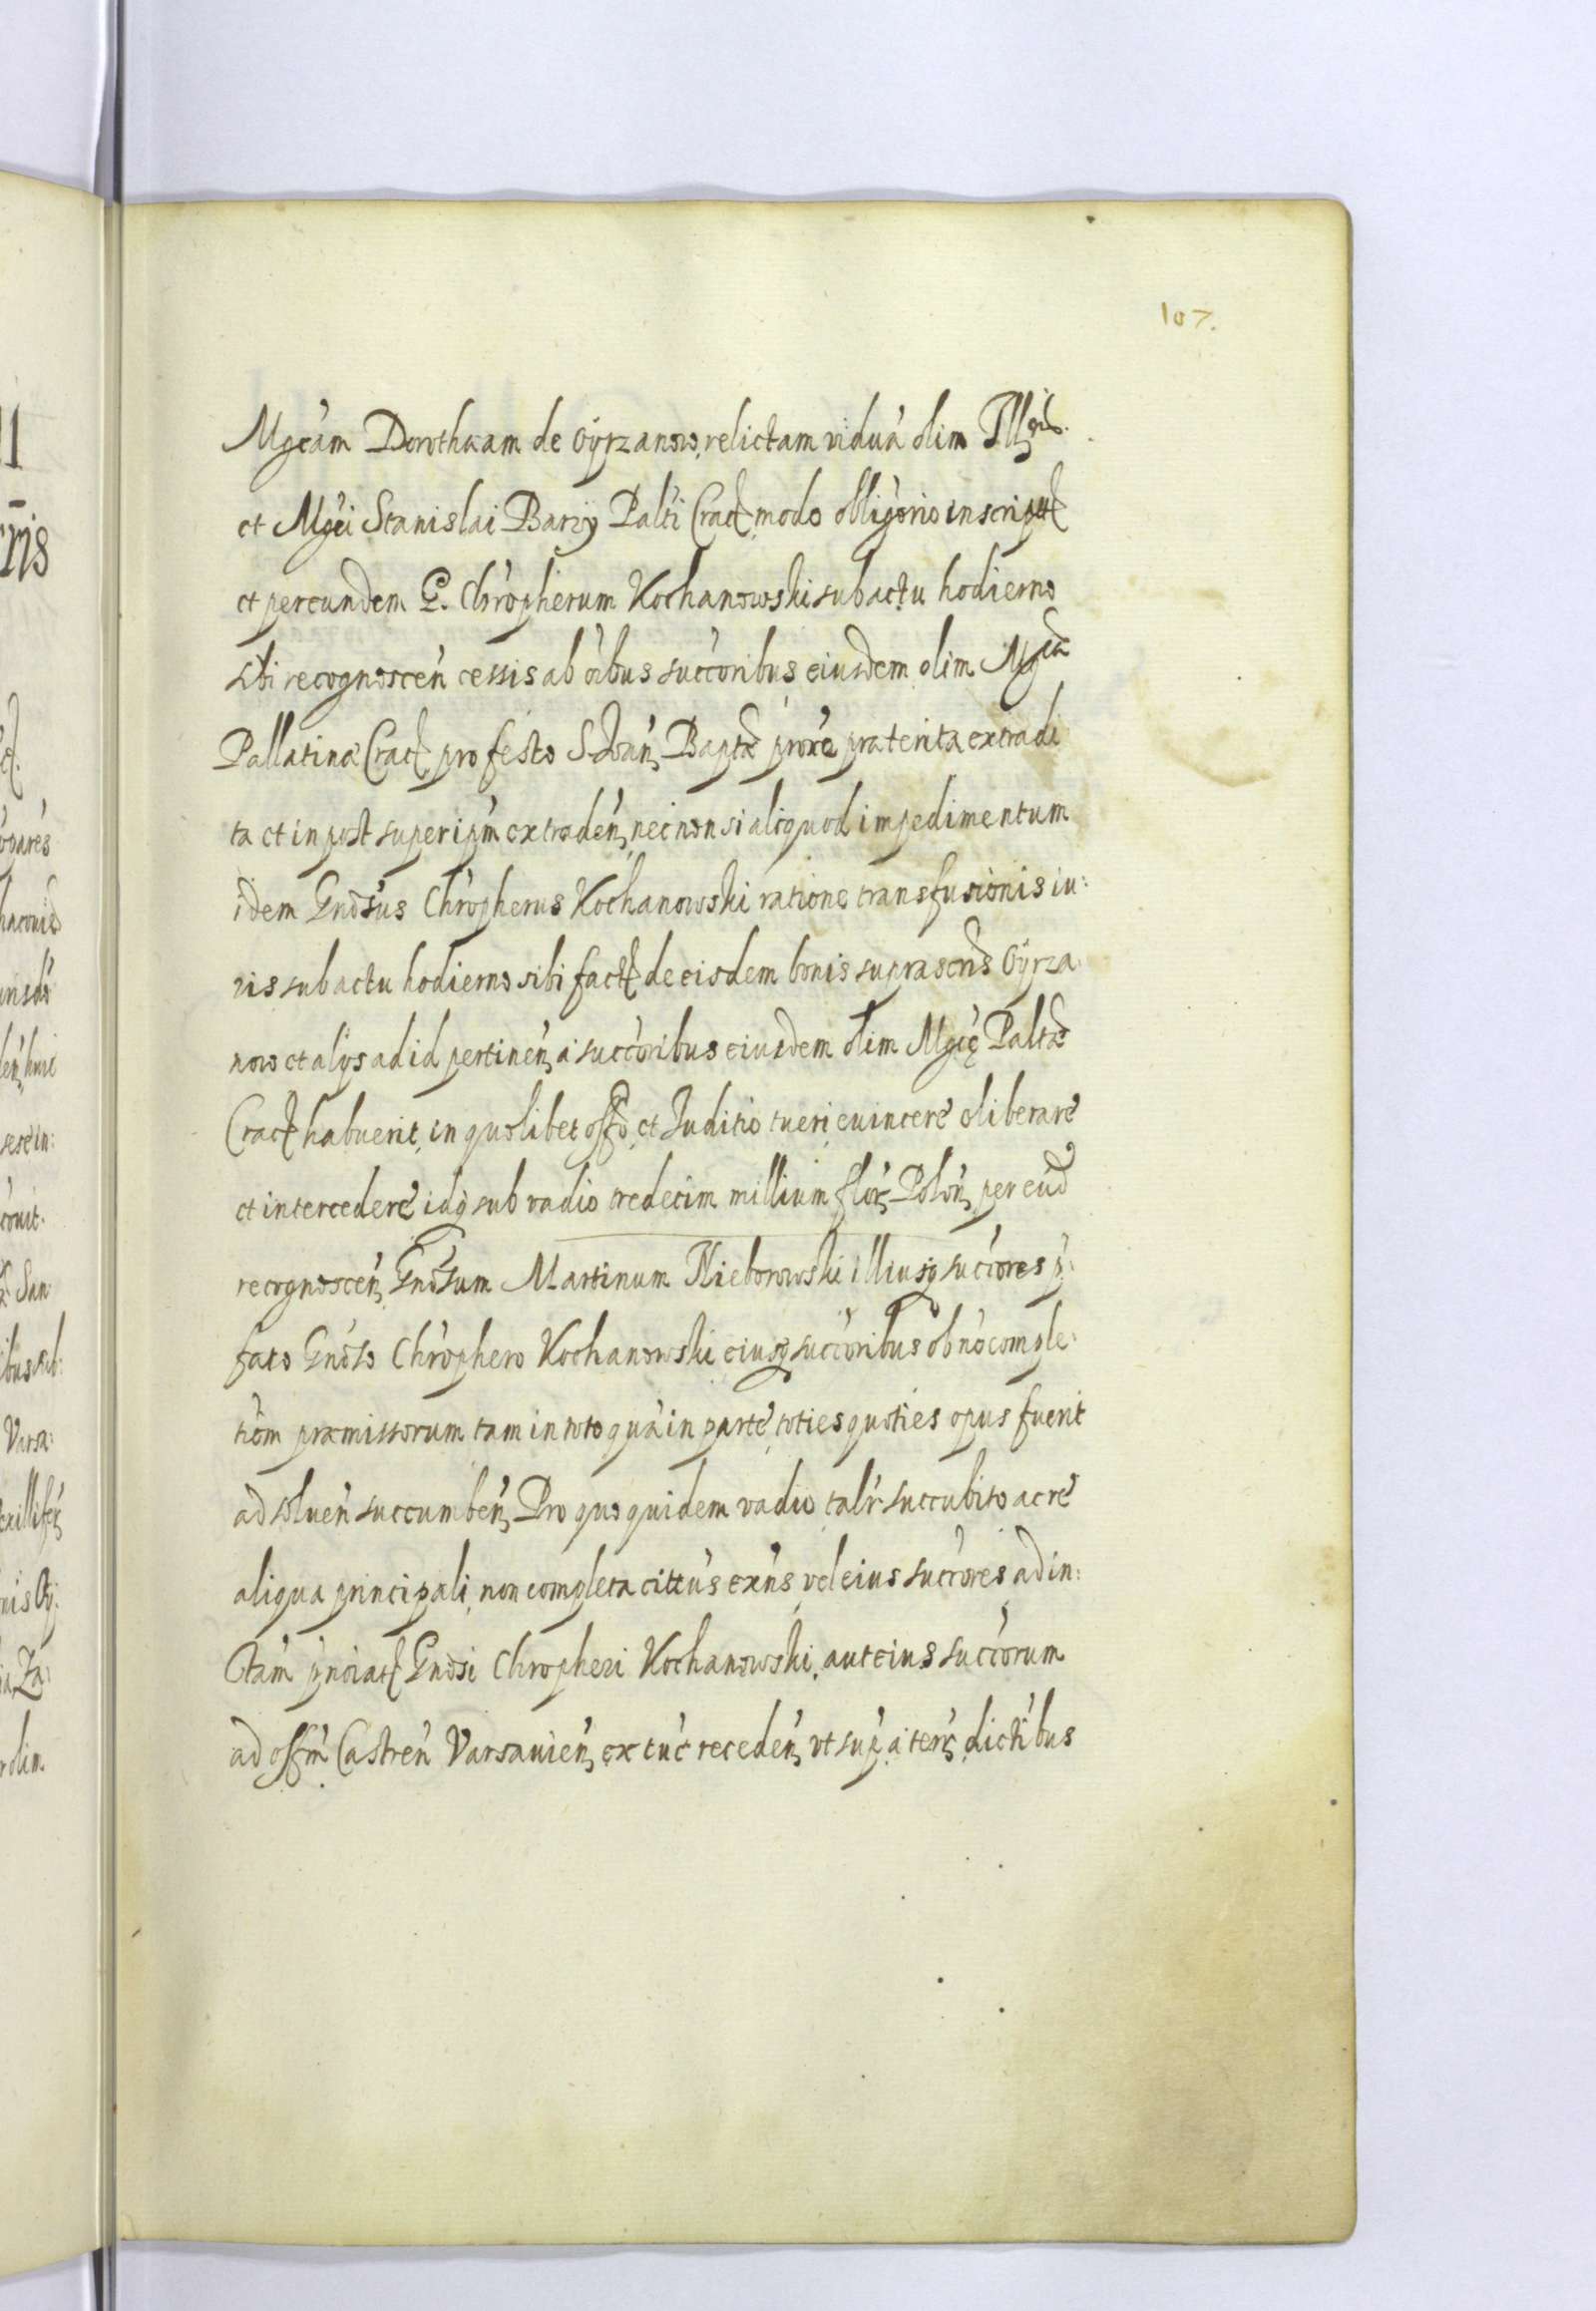 107.
Mgcam Dorothæam de Oyrzanow, relictam viduā olim Ill
et Mgci Stanislai Barzy Palti Crac modo obligorio inscript
et per eundem G. Chropherum Kochanowski sub actu hodierno
sibi recognoscen cessis ab oibus succoribus eiusdem olim Mgcæ
Pallatinæ Crac pro festo S. Joan Baptæ proxe præterita extradi
ta et in post super ipm extraden, nec non si aliquod impedimentum
idem Gnosus Chropherus Kochanowski ratione transfusionis iu:
ris sub actu hodierno sibi fact de eisdem bonis suprascris Oyrza
now et alijs ad id pertinen, a succoribus eiusdem olim Mgcę Paltæ
Crac habuerit, in quolibet offo, et Juditio tueri, evincere oliberare
et intercedere idq sub vadio tredecim millium flor, Polon, per eud
recognoscen, Gnosum Martinum Nieborowski illiusq succores p:
fato Gnoso Chrophero Kochanowski eiusq succoribus ob no comple:
tiom præmissorum tam in toto quā in parte, toties quoties opus fuerit
ad soluen succumben, Pro quo quidem vadio talr succubito ac re
aliqua principali, non completa cittus exns vel eius succores, ad in:
stam Gnosi Chropheri Kochanowski, aut eius succorum
ad offm Castren Varsavien, ex tuc receden, ut sup, a ter, dictibus